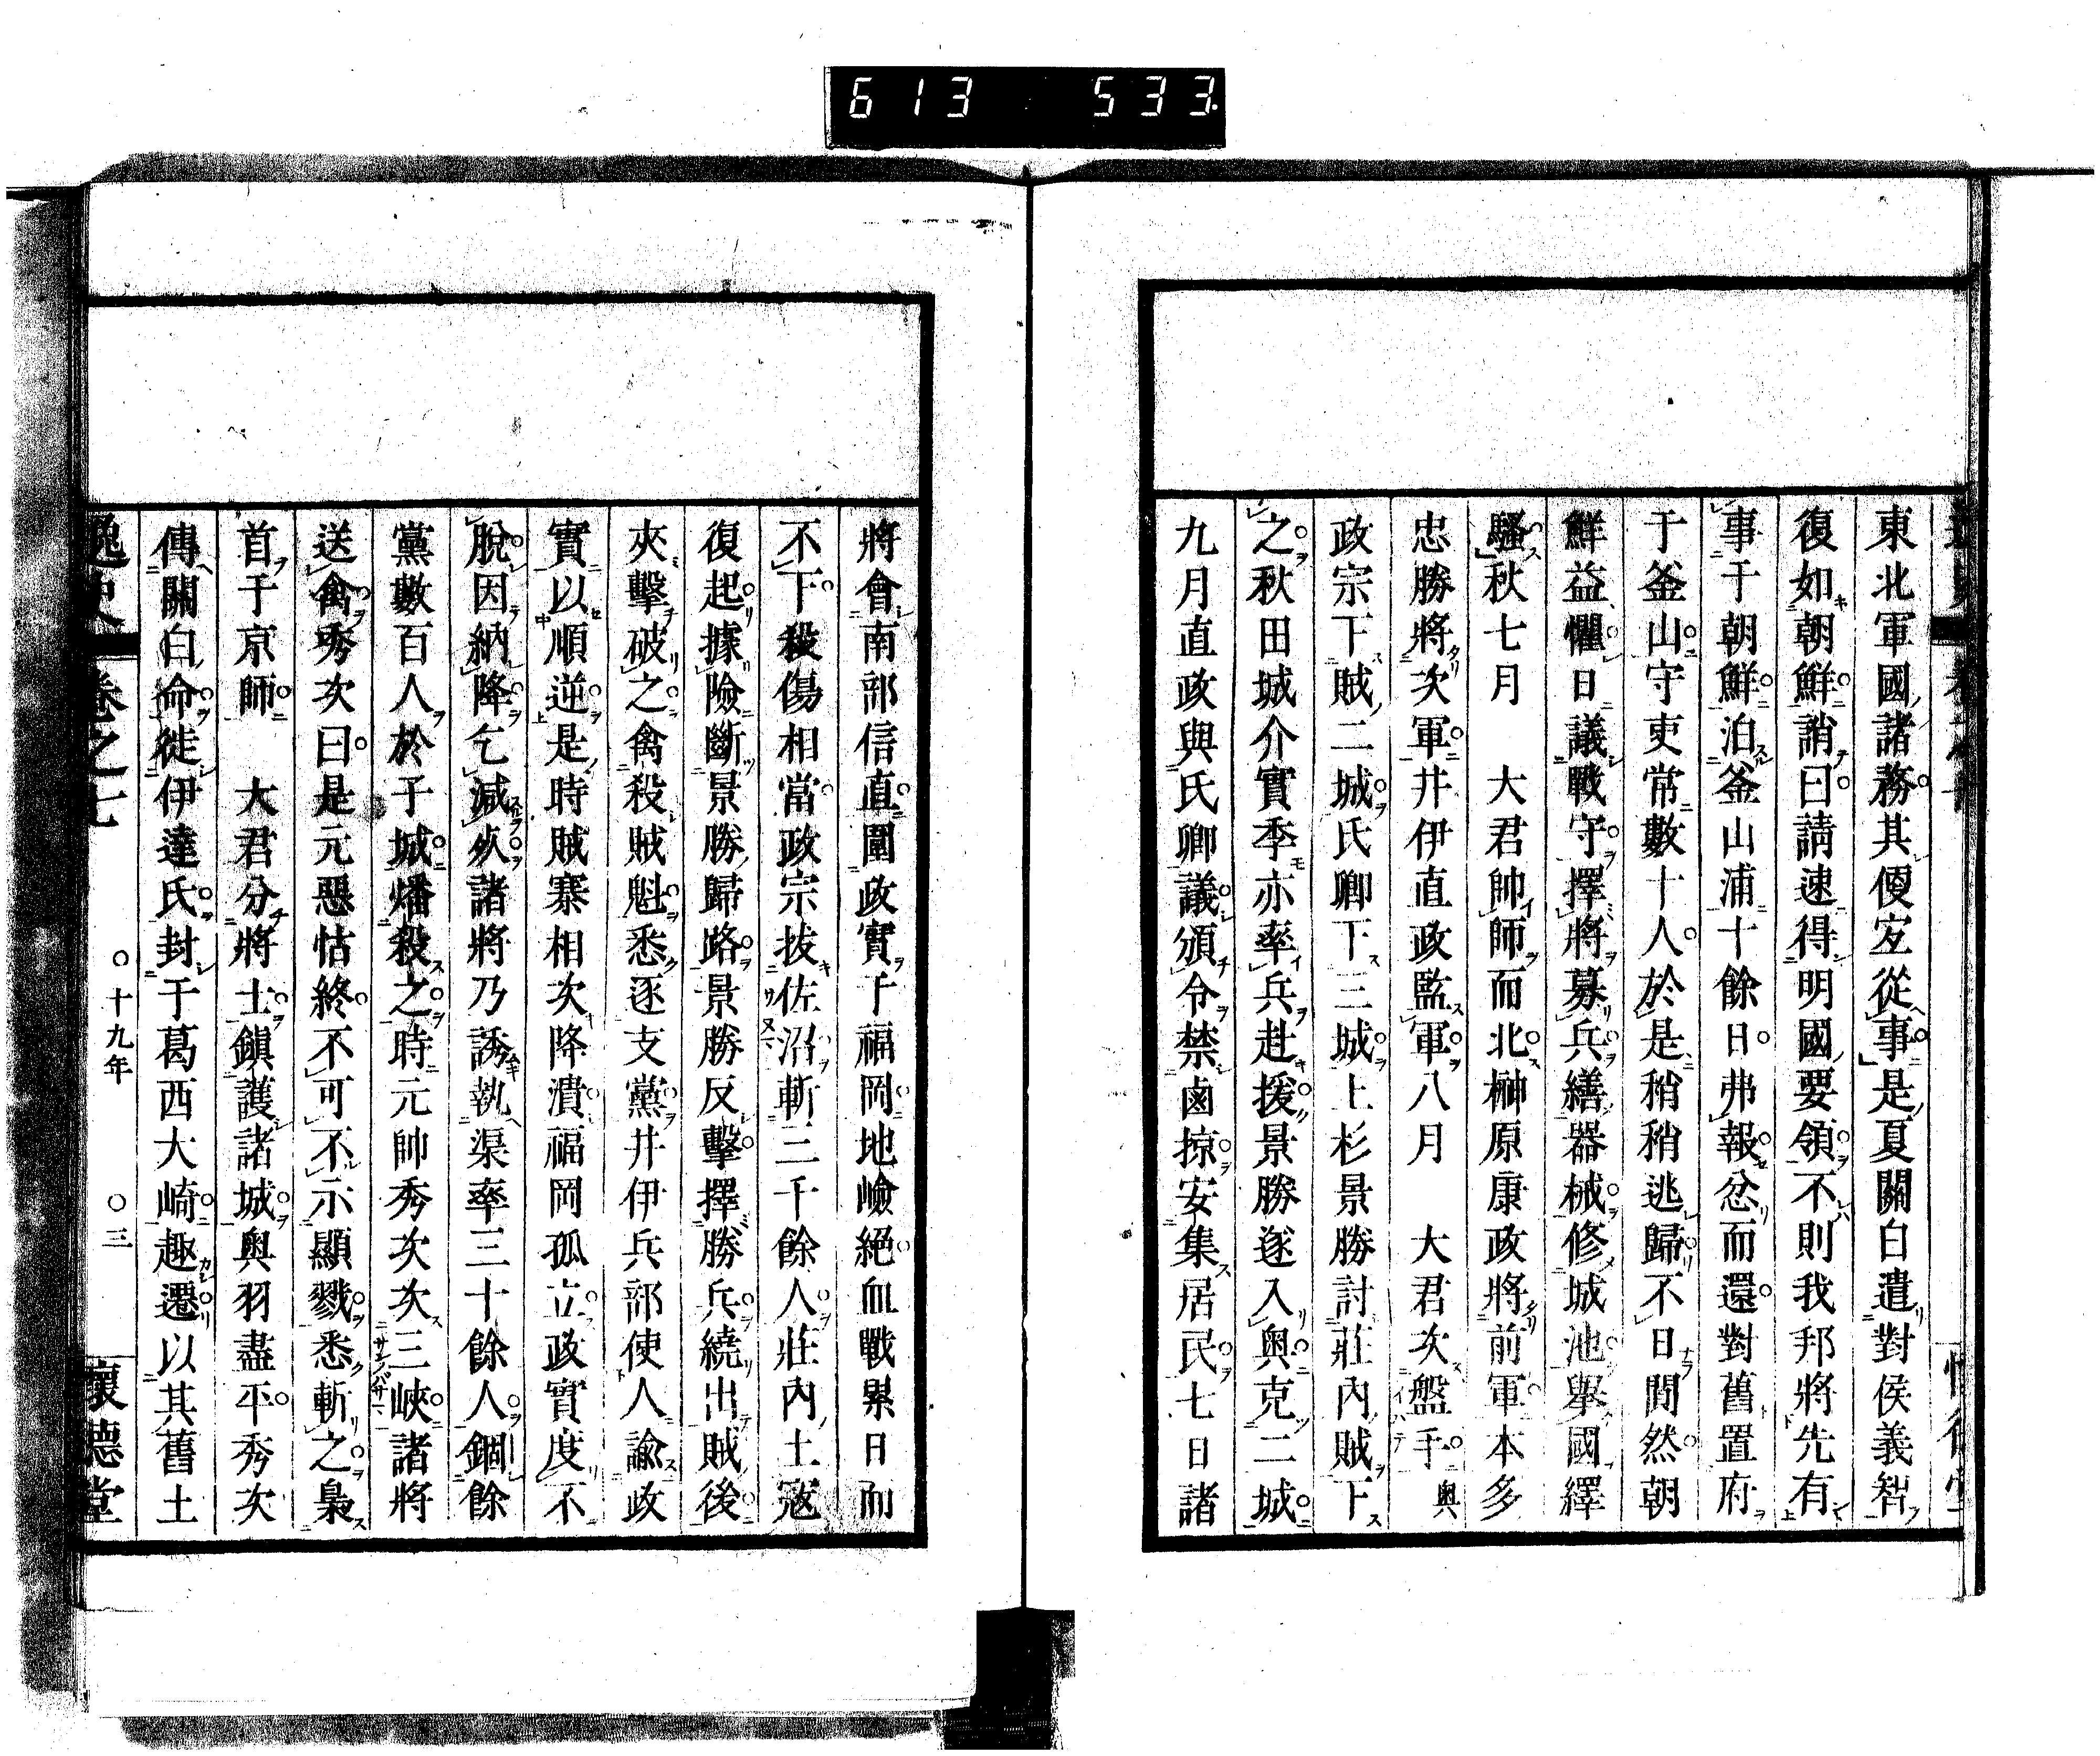 613 533
東北軍國諸務其便宐從事是夏關白遣對侯義智
復如朝鮮誚曰請速得明國要領不則我邦將先有
事于朝鮮泊釜山浦十餘日弗報忿而還對舊置府
于釜山守吏常數十人於是稍稍逃歸不日閴然朝
鮮益懼日議戰守擇將募兵繕器械修城池擧國繹
騷秋七月　大君帥師而北榊原康政將前軍本多
忠勝將次軍井伊直政監軍八月　大君次盤手奥
政宗下賊二城氏卿下三城上杉景勝討莊內賊下
之秋田城介實季亦率兵赴援景勝遂入奥克二城
九月直政與氏卿議頒令禁鹵掠安集居民七日諸
將會南部信直圍政實于福岡地嶮絕血戰累日而
不下殺傷相當政宗拔佐沼斬三千餘人莊內土寇
復起據險斷景勝歸路景勝反擊擇勝兵繞出賊後
夾擊破之禽殺賊魁悉逐支黨井伊兵部使人諭政
實以順逆是時賊寨相次降潰福岡孤立政實度不
脫因納降乞減死諸將乃誘執渠率三十餘人錮餘
黨數百人於子城燔殺之時元帥秀次次三峽諸將
送禽秀次曰是元惡怙終不可不示顯戮悉斬之梟
首于京師　大君分將士鎭護諸城奥羽盡平秀次
傳關白命徙伊達氏封于葛西大崎趣遷以其舊土
逸史　卷之七　○十九年　○三　懷德堂